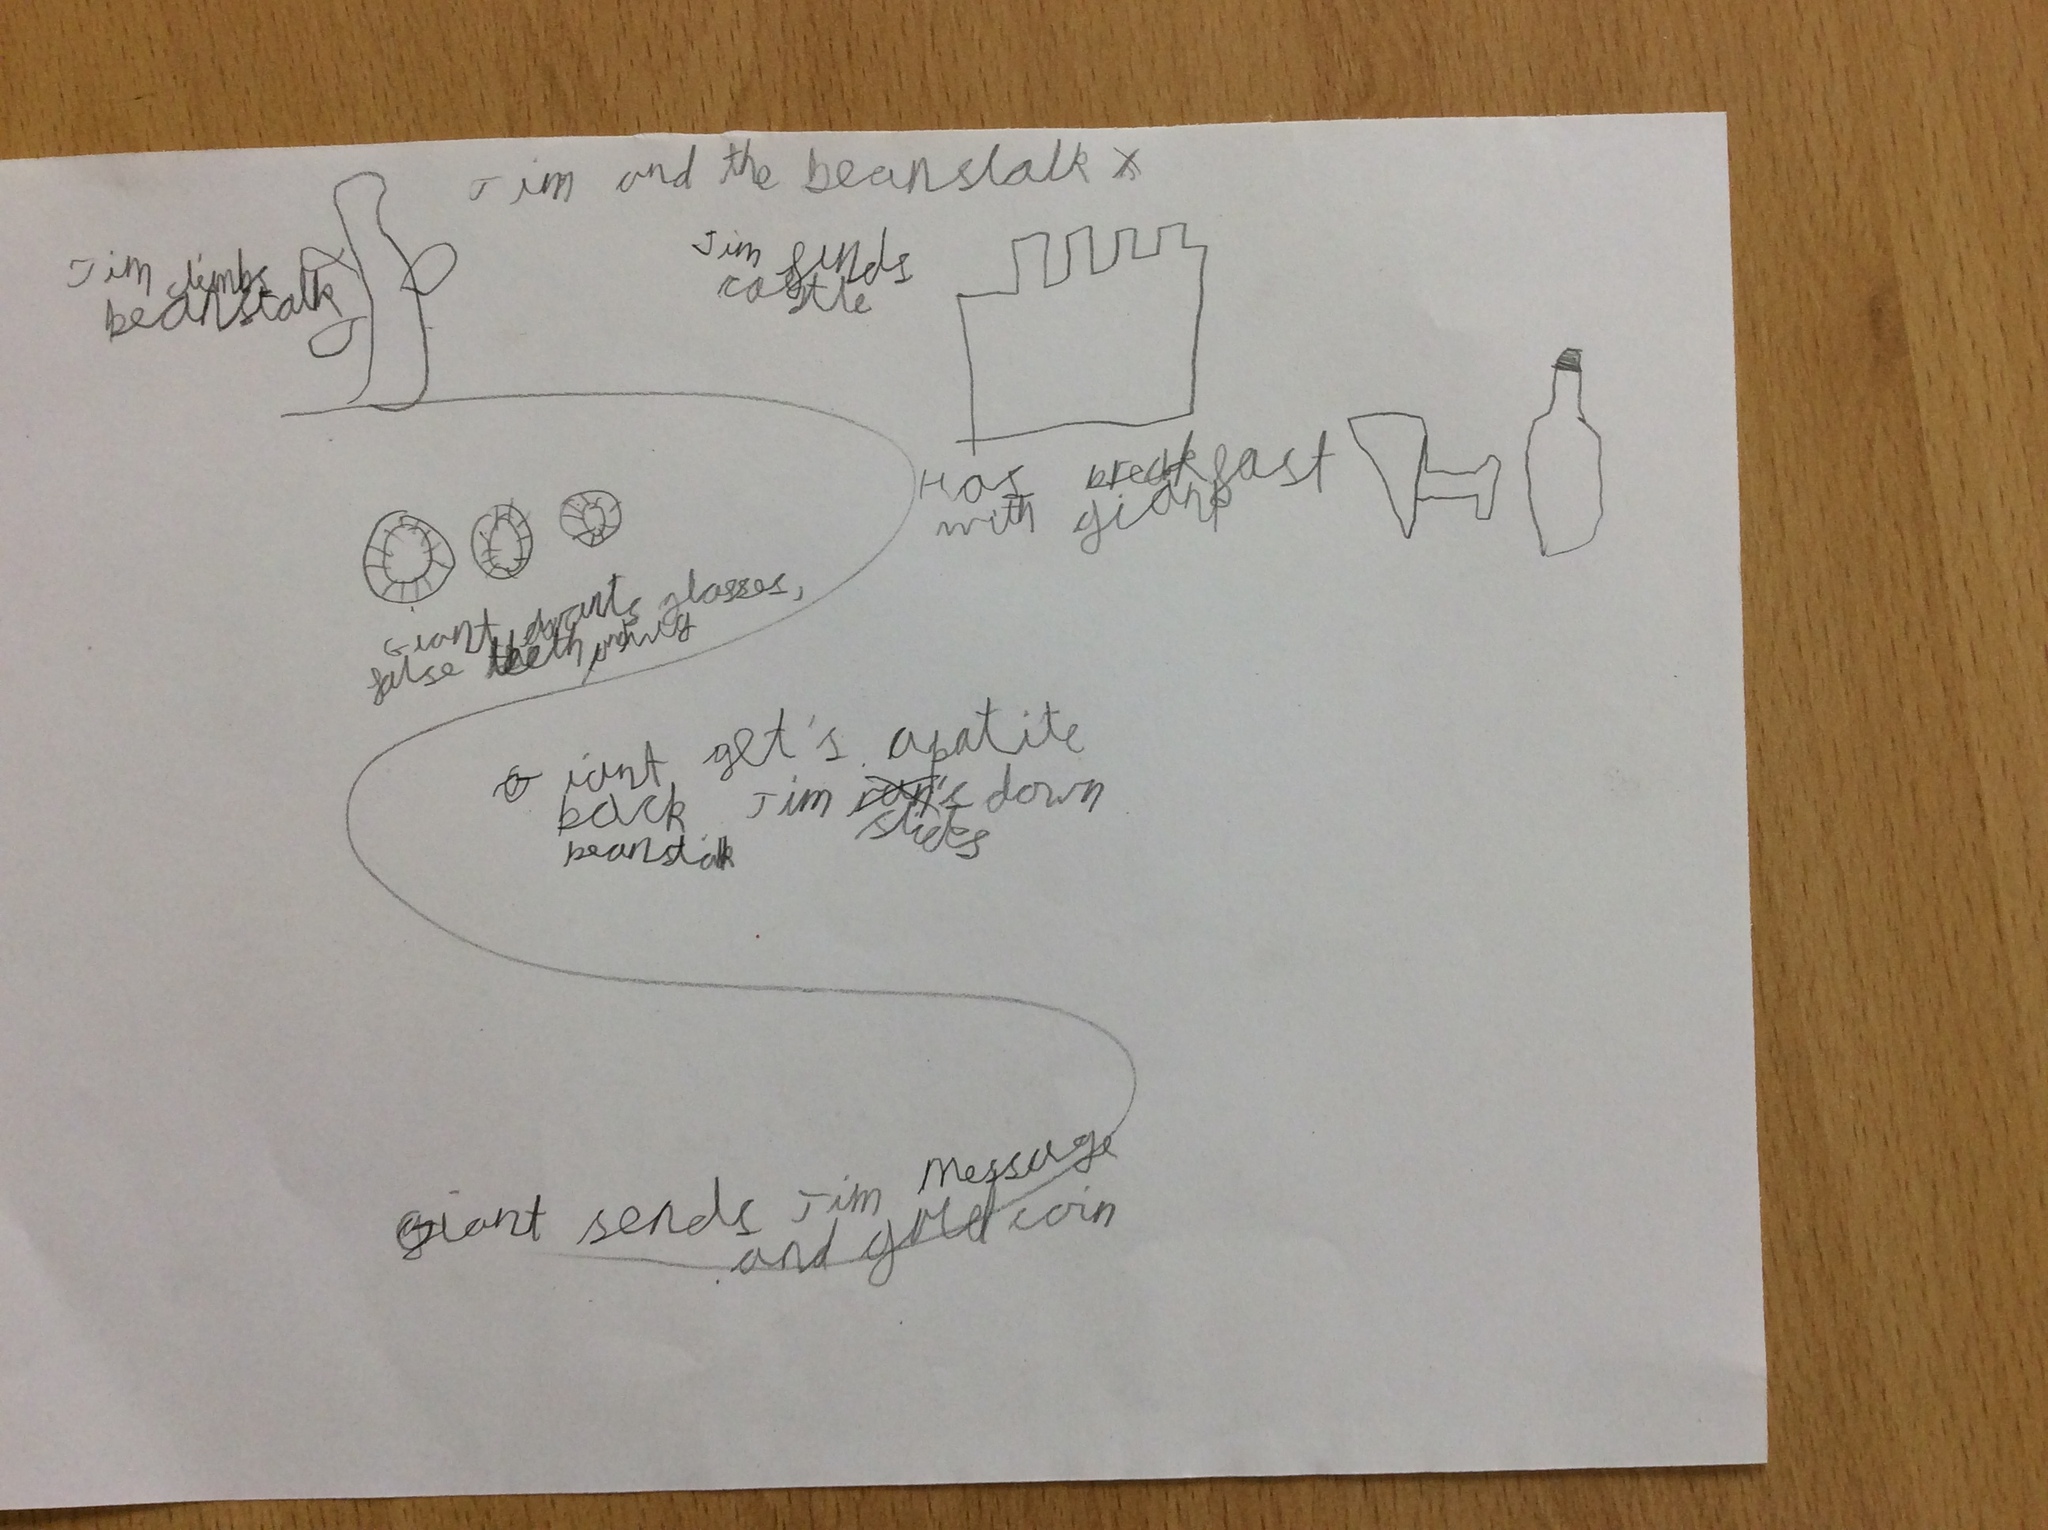 Jim and the beanstalk
Jim climbs
beanstalk
Jim finds
castle
Has breakfast
with giant
Giant wants glasses,
false teeth, and wig
Giant get's apatite
back Jim ran's down
slides
beanstalk
Giant sends Jim message
and gold coin